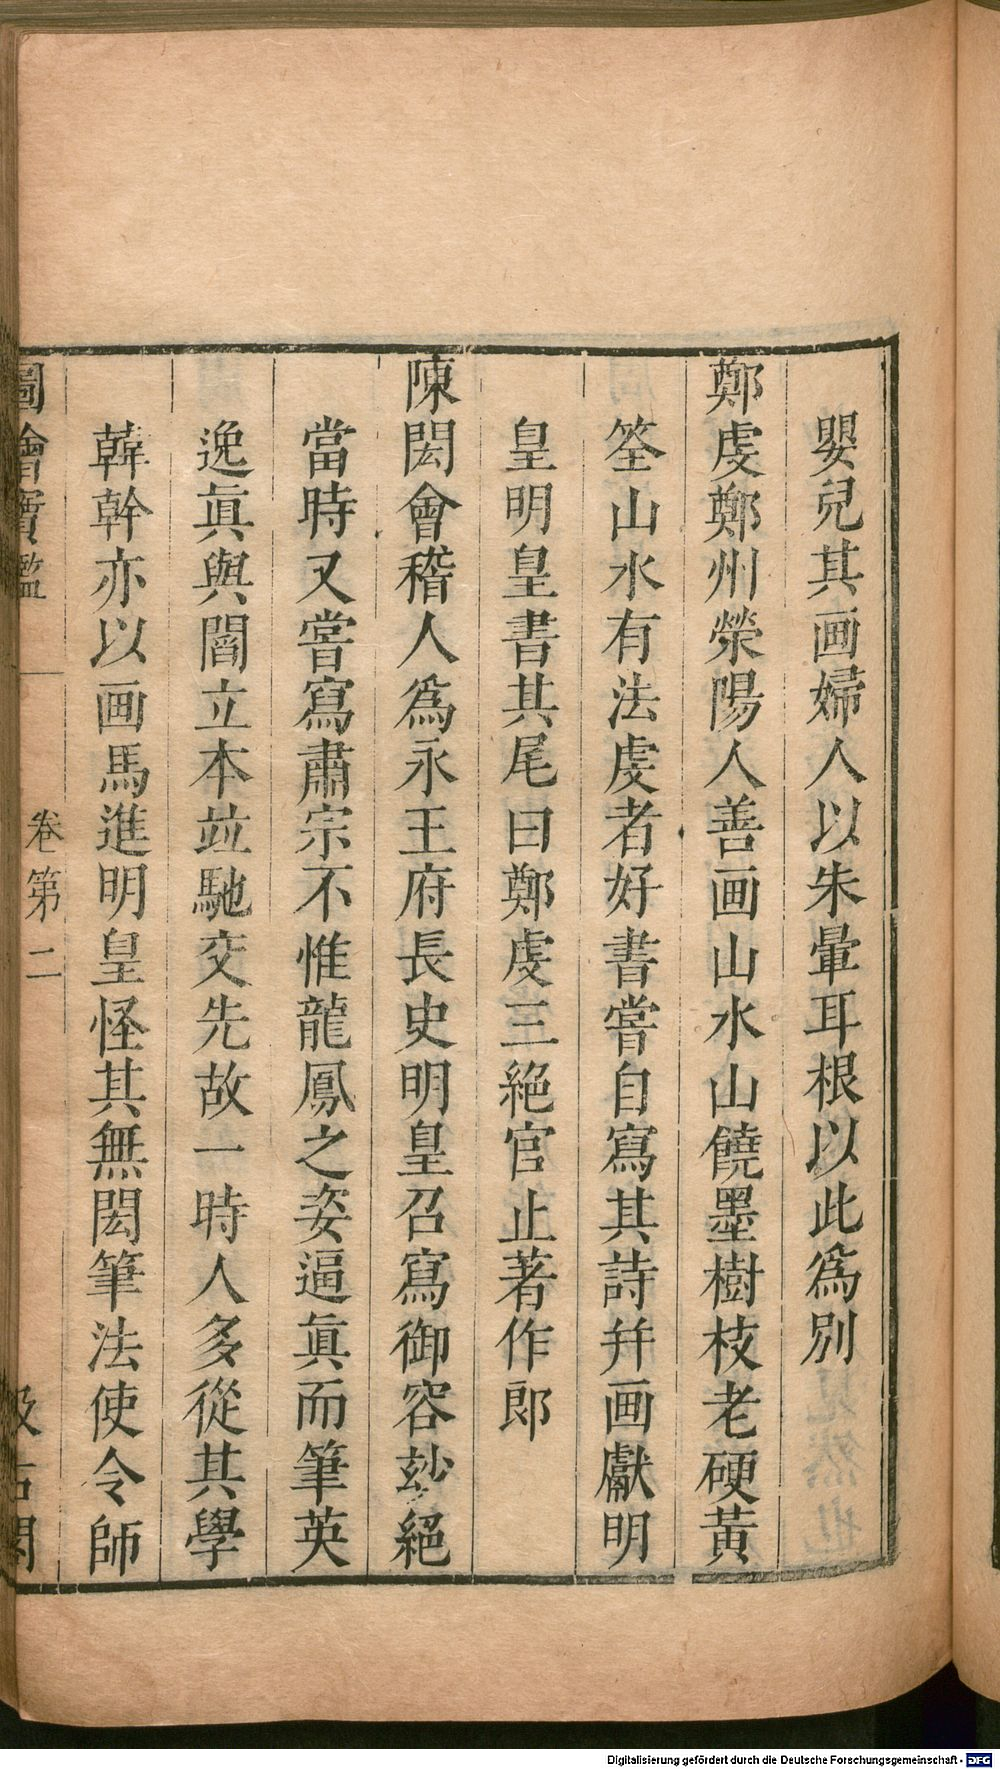 嬰兒其画婦人以朱暈耳根以此爲别
鄭虔鄭州滎陽人善画山水山饒墨樹枝老硬黃
筌山水有法虔者好書嘗自寫其詩幷画獻明
皇明皇書其尾曰鄭虔三絕官止著作郎
陳閎會稽人爲永王府長史明皇召寫御容玅絕
當時又嘗寫肅宗不惟龍鳳之姿逼眞而筆英
逸眞與閻立本竝馳交先故一時人多從其學
韓幹亦以画馬進明皇怪其無閎筆法使令師
圖繪寶鑑 卷第二 汲古閣
Digitalisierung gefördert durch die Deutsche Forschungsgemeinschaft - DFG